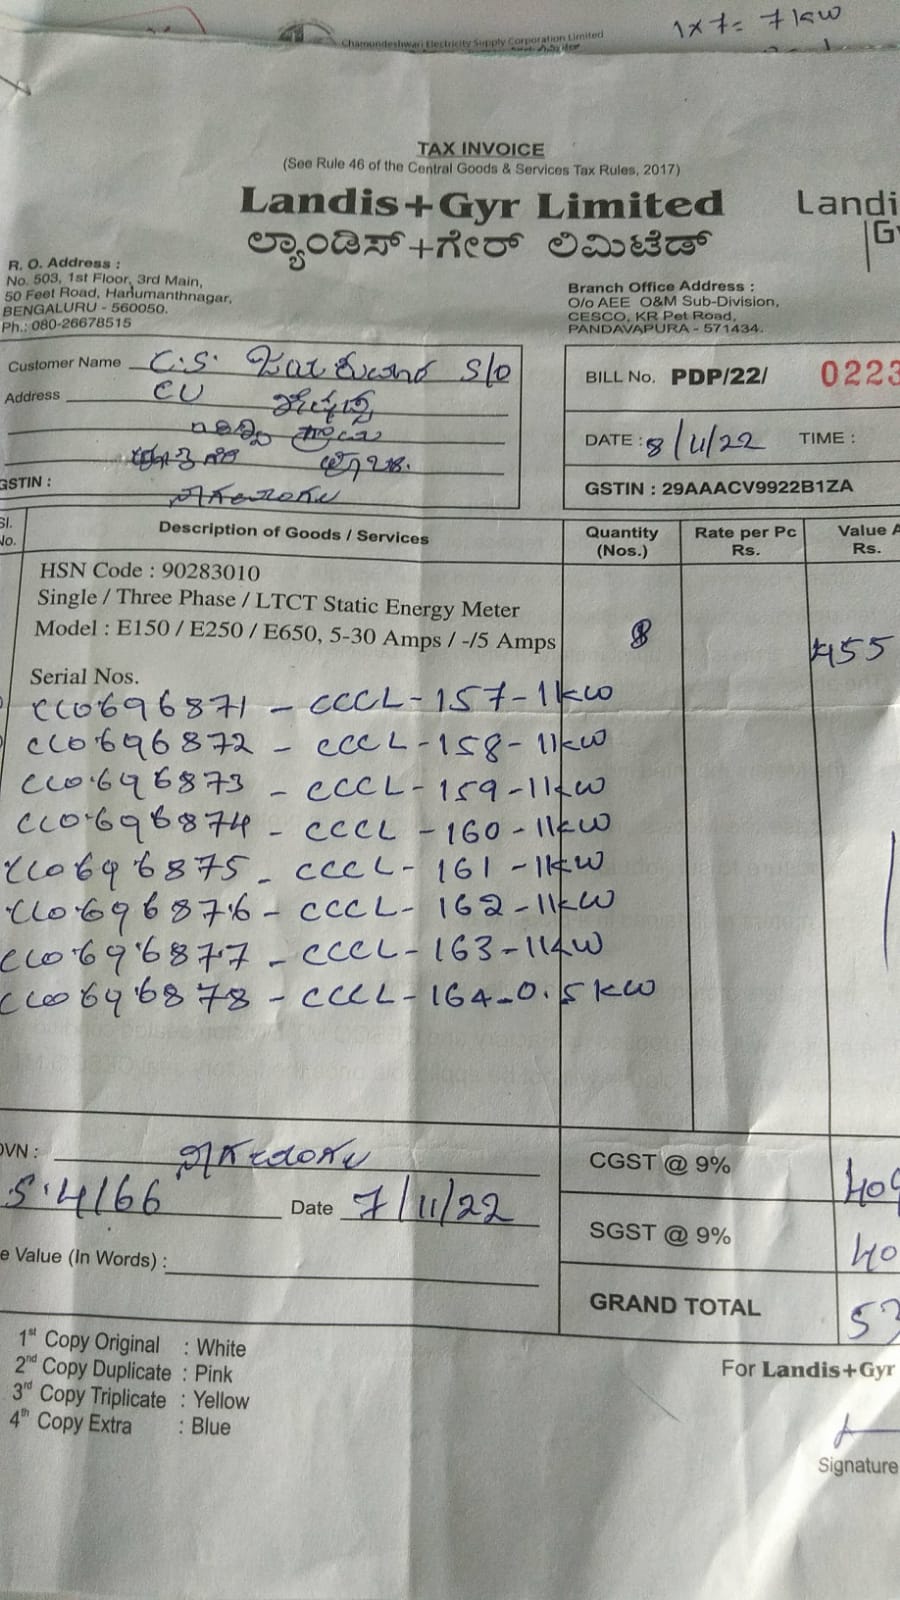 1x7= 7kw
Chamundeshwari Electricity Supply Corporation Limited
TAX INVOICE
(See Rule 46 of the Central Goods & Services Tax Rules, 2017)
Landis+Gyr Limited
Landi
ಲ್ಯಾಂಡಿಸ್+ಗೇರ್ ಲಿಮಿಟೆಡ್
G
R. O. Address :
No. 503, 1st Floor, 3rd Main,
50 Feet Road, Hanumanthnagar,
BENGALURU - 560050.
Ph.: 080-26678515
Branch Office Address :
O/o AEE O&M Sub-Division,
CESCO, KR Pet Road,
PANDAVAPURA - 571434.
Customer Name C.S. S/o
Address
GSTIN :
BILL No. PDP/22/ 0223
DATE : 8/11/22 TIME :
GSTIN : 29AAACV9922B1ZA
Sl. No. Description of Goods / Services Quantity (Nos.) Rate per Pc Rs. Value A Rs.
HSN Code : 90283010
Single / Three Phase / LTCT Static Energy Meter
Model : E150 / E250 / E650, 5-30 Amps / -/5 Amps 8 455
Serial Nos.
CC0696871 - CCCL-157-1kw
CC0696872 - CCCL-158-1kw
CC0696873 - CCCL-159-1kw
CC0696874 - CCCL-160-1kw
CC0696875 - CCCL-161-1kw
CC0696876 - CCCL-162-1kw
CC0696877 - CCCL-163-1kw
CC0696878 - CCCL-164-0.5kw
OVN :
5.4166 Date 7/11/22
e Value (In Words) :
CGST @ 9% 409
SGST @ 9% 40
GRAND TOTAL 53
1st Copy Original : White
2nd Copy Duplicate : Pink
3rd Copy Triplicate : Yellow
4th Copy Extra : Blue
For Landis+Gyr
Signature